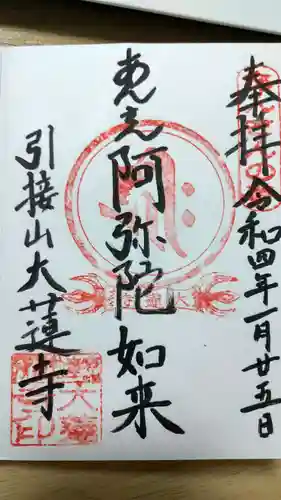 奉拝 令和四年一月廿五日
阿弥陀如来
引接山大蓮寺